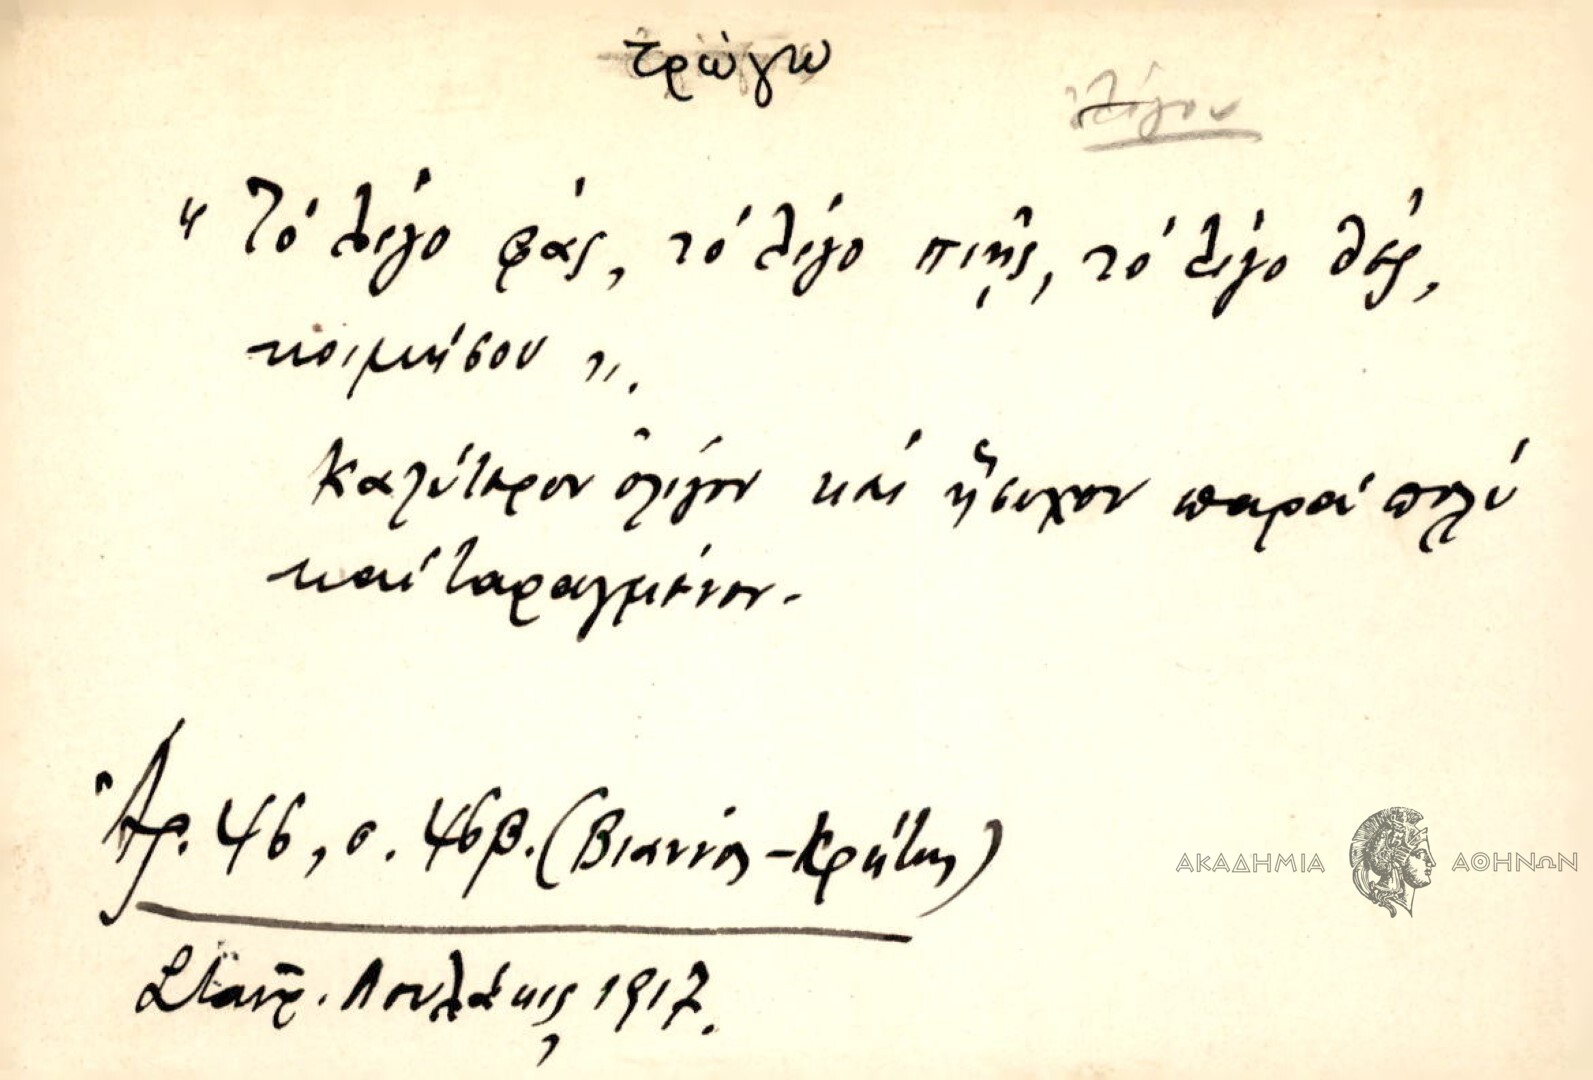 τρώγω
ὀλίγον
"Τό λίγο φάς, τό λίγο πιῇς, τό λίγο θές,
κοιμήσου".
Καλύτερον ὀλίγον καί ἥσυχον παρά πολύ
καί ταραγμένον.
Ἀρ. 46, σ. 46β. (Βιάννος - Κρήτης)
ΑΚΑΔΗΜΙΑ ΑΘΗΝΩΝ
Σταῦρ. Λουλάκις, 1917.